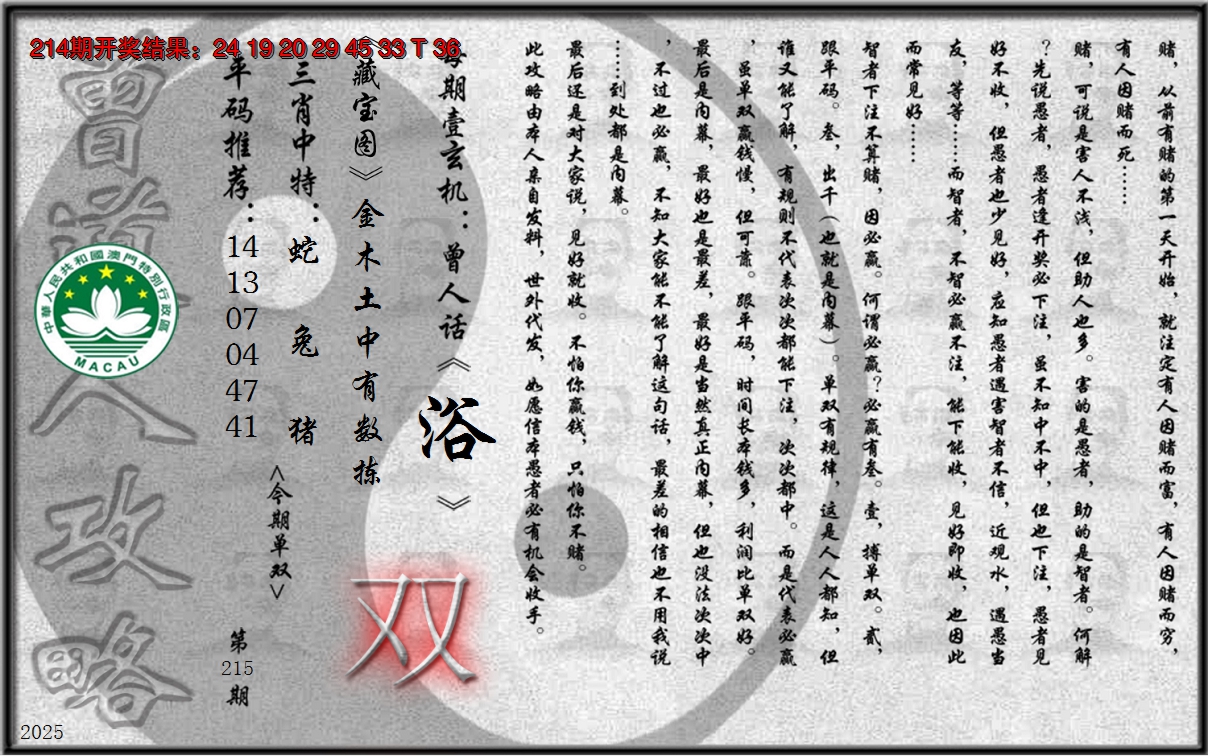 214期开奖结果：24 19 20 29 45 33 T 36
赌，从前有赌的第一天开始，就注定有人因赌而富，有人因赌而穷，
有人因赌而死……
赌，可说是害人不浅，但助人也多。害的是愚者，助的是智者。何解
？先说愚者，愚者逢开奖必下注，虽不知中不中，但也下注，愚者见
好不收，但愚者也少见好，应知愚者遇害智者不信，近观水，遇愚当
友，等等……而智者，不智必赢不注，能下能收，见好即收，也因此
而常见好……
智者下注不算赌，因必赢。何谓必赢？必赢有叁。壹，搏单双。贰，
跟平码。叁，出千（也就是内幕）。单双有规律，这是人人都知，但
谁又能了解，有规则不代表次次都能下注，次次都中。而是代表必赢
，虽单双赢钱慢，但可靠。跟平码，时间长本钱多，利润比单双好。
最后是内幕，最好也是最差，最好是当然真正内幕，但也没法次次中
，不过也必赢，不知大家能不能了解这句话，最差的相信也不用我说
……到处都是内幕。
最后还是对大家说，见好就收。不怕你赢钱，只怕你不赌。
此攻略由本人亲自发料，世外代发，如愿信本愚者必有机会收手。
每期壹玄机：曾人话《浴》
《藏宝图》金木土中有数拣
双
三肖中特：蛇 兔 猪
<今期单双>
平码推荐：
14
13
07
04
47
41
第
215
期
曾道人攻略
中華人民共和國澳門特別行政區
MACAU
2025